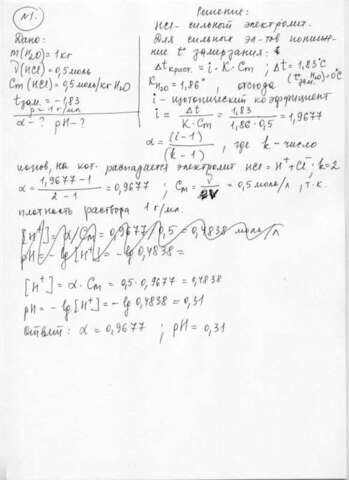 №1.
Дано:
m(H₂O) = 1 кг
ν(HCl) = 0,5 моль
Cm(HCl) = 0,5 моль/кг H₂O
tзам. = -1,83
ρ - 1 г/мл
α - ? pH - ?
Решение:
HCl - сильный электролит.
Для сильных эл-тов пониже-
ние t° замерзания:
Δtкрист. = i · K · Cm ; Δt = 1,83°C
KH₂O = 1,86° , отсюда (t°зам. H₂O) = 0°C
i - изотонический коэффициент
i = Δt / K · Cm = 1,83 / 1,86 · 0,5 = 1,9677
α = (i - 1) / (k - 1) , где k - число
ионов, на кот. распадается электролит HCl = H⁺ + Cl⁻, k = 2
α = 1,9677 - 1 / 2 - 1 = 0,9677 ; Cm = = 0,5 моль/л , т.к.
плотность раствора 1 г/мл.
[H⁺] = α/Cm = 0,9677/0,5 = 0,4838 моль/л
pH = - lg[H⁺] = - lg 0,4838 =
[H⁺] = α · Cm = 0,5 · 0,9677 = 0,4838
pH = - lg[H⁺] = - lg 0,4838 = 0,31
Ответ: α = 0,9677 ; pH = 0,31